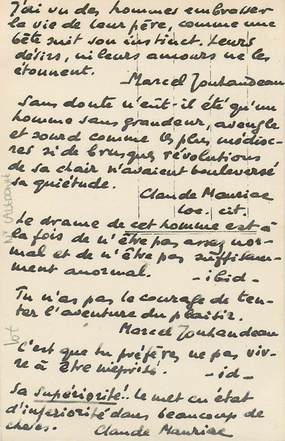 J'ai vu des hommes embrasser
la vie de leur père, comme une
bête suit son instinct. Leurs
désirs, ni leurs amours ne les
étonnent.
Marcel Jouhandeau
Sans doute n'eût-il été qu'un
homme sans grandeur, aveugle
et sourd comme les plus médioc-
res si de brusques révolutions
de sa chair n'avaient bouleversé
sa quiétude.
Claude Mauriac
loc. cit.
Le drame de cet homme est à
la fois de n'être pas assez nor-
mal et de n'être pas suffisam-
ment anormal.
- ibid -
Tu n'as pas le courage de ten-
ter l'aventure du plaisir.
Marcel Jouhandeau
C'est que tu préfères ne pas viv-
re à être méprisé.
- id -
Sa supériorité le met en état
d'infériorité dans beaucoup de
choses.
Claude Mauriac